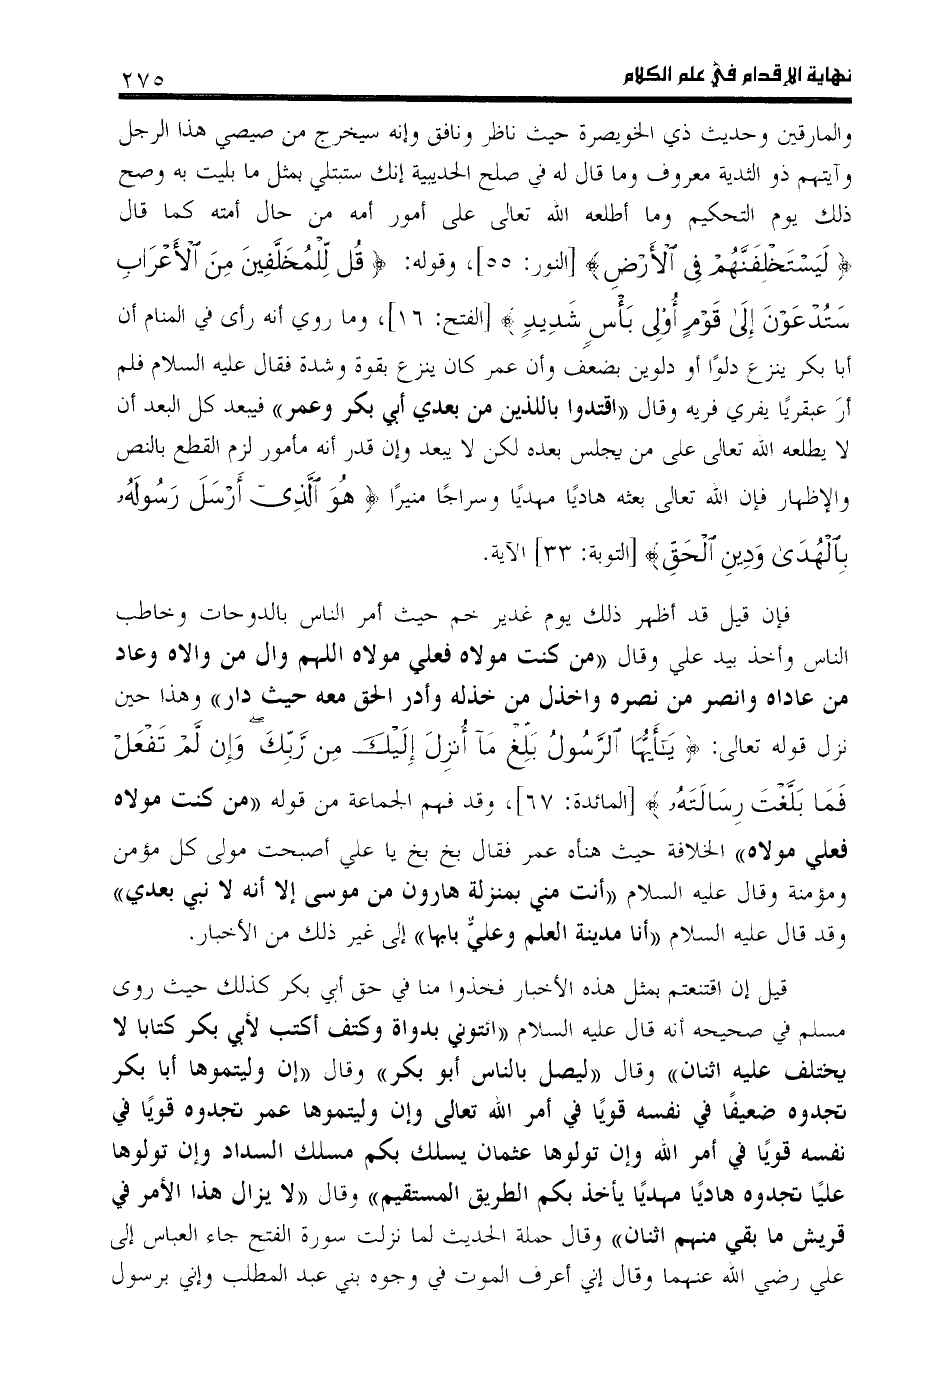 نهاية الإقدام في علم الكلام
٢٧٥
والمارقين وحديث ذي الخويصرة حيث ناظر ونافق وإنه سيخرج من صيصي هذا الرجل
وآيتهم ذو الثدية معروف وما قال له في صلح الحديبية إنك ستبتلي بمثل ما بليت به وصح
ذلك يوم التحكيم وما أطلعه الله تعالى على أمور أمه من حال أمته كما قال
﴿ لَيَسْتَخْلِفَنَّهُمْ فِي ٱلْأَرْضِ ﴾ [النور: ٥٥]، وقوله: ﴿ قُل لِّلْمُخَلَّفِينَ مِنَ ٱلْأَعْرَابِ
سَتُدْعَوْنَ إِلَىٰ قَوْمٍ أُوْلِى بَأْسٍ شَدِيدٍ ﴾ [الفتح: ١٦]، وما روي أنه رأى في المنام أن
أبا بكر ينزع دلوًا أو دلوين بضعف وأن عمر كان ينزع بقوة وشدة فقال عليه السلام فلم
أرَ عبقريًا يفري فريه وقال «اقتدوا باللذين من بعدي أبي بكر وعمر» فيبعد كل البعد أن
لا يطلعه الله تعالى على من يجلس بعده لكن لا يبعد وإن قدر أنه مأمور لزم القطع بالنص
والإظهار فإن الله تعالى بعثه هاديًا مهديًا وسراجًا منيرًا ﴿ هُوَ ٱلَّذِىٓ أَرْسَلَ رَسُولَهُۥ
بِٱلْهُدَىٰ وَدِينِ ٱلْحَقِّ ﴾ [التوبة: ٣٣] الآية.
فإن قيل قد أظهر ذلك يوم غدير خم حيث أمر الناس بالدوحات وخاطب
الناس وأخذ بيد علي وقال «من كنت مولاه فعلي مولاه اللهم وال من والاه وعاد
من عاداه وانصر من نصره واخذل من خذله وأدر الحق معه حيث دار» وهذا حين
نزل قوله تعالى: ﴿ يَٰٓأَيُّهَا ٱلرَّسُولُ بَلِّغْ مَآ أُنزِلَ إِلَيْكَ مِن رَّبِّكَ ۖ وَإِن لَّمْ تَفْعَلْ
فَمَا بَلَّغْتَ رِسَالَتَهُۥ ﴾ [المائدة: ٦٧]، وقد فهم الجماعة من قوله «من كنت مولاه
فعلي مولاه» الخلافة حيث هنأه عمر فقال بخ بخ يا علي أصبحت مولى كل مؤمن
ومؤمنة وقال عليه السلام «أنت مني بمنزلة هارون من موسى إلا أنه لا نبي بعدي»
وقد قال عليه السلام «أنا مدينة العلم وعليٌّ بابها» إلى غير ذلك من الأخبار.
قيل إن اقتنعتم بمثل هذه الأخبار فخذوا منا في حق أبي بكر كذلك حيث روى
مسلم في صحيحه أنه قال عليه السلام «ائتوني بدواة وكتف أكتب لأبي بكر كتابا لا
يختلف عليه اثنان» وقال «ليصل بالناس أبو بكر» وقال «إن وليتموها أبا بكر
تجدوه ضعيفًا في نفسه قويًا في أمر الله تعالى وإن وليتموها عمر تجدوه قويًا في
نفسه قويًا في أمر الله وإن تولوها عثمان يسلك بكم مسلك السداد وإن تولوها
عليًا تجدوه هاديًا مهديًا يأخذ بكم الطريق المستقيم» وقال «لا يزال هذا الأمر في
قريش ما بقي منهم اثنان» وقال حملة الحديث لما نزلت سورة الفتح جاء العباس إلى
علي رضي الله عنهما وقال إني أعرف الموت في وجوه بني عبد المطلب وإني برسول